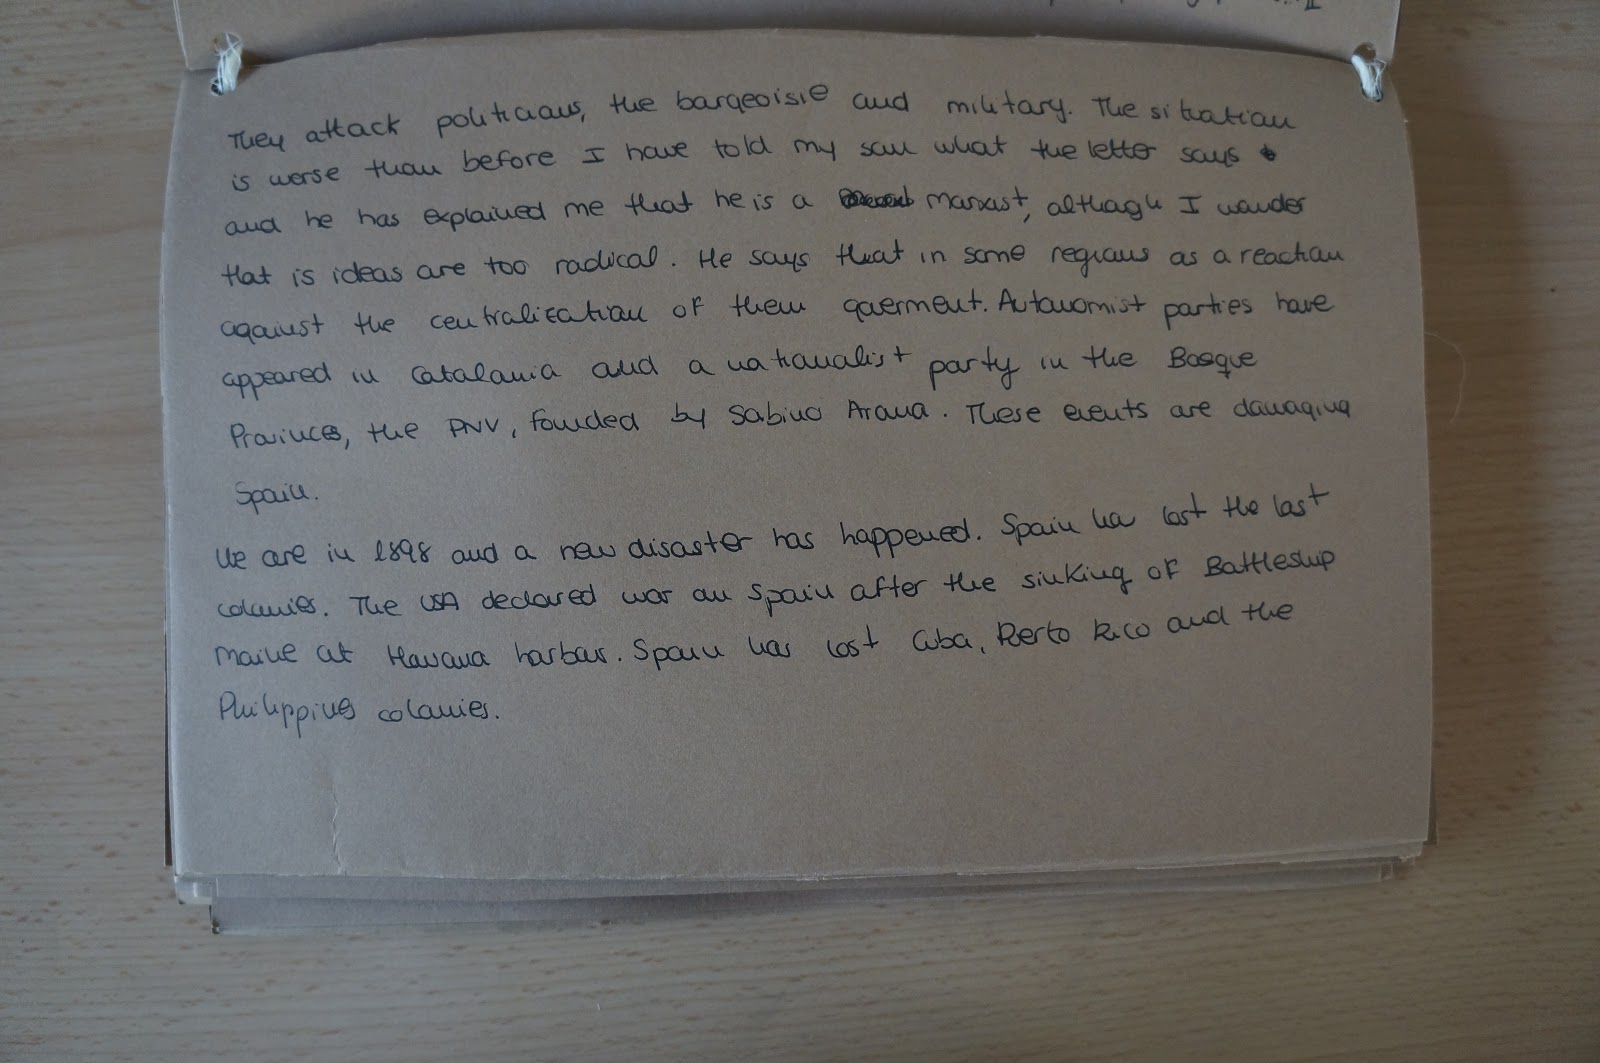 They attack politicians, the bargeoisie and military. The situation
is worse than before I have told my son what the letter says
and he has explained me that he is a marxist, although I wonder
that is ideas are too radical. He says that in some regions as a reaction
against the centralization of them goverment. Autonomist parties have
appeared in Catalonia and a nationalist party in the Basque
Provinces, the PNV, founded by Sabino Arana. These events are damaging
Spain.
We are in 1898 and a new disaster has happened. Spain ha lost the last
colonies. The USA declared war on Spain after the sinking of Battleship
Maine at Havana harbour. Spain has lost Cuba, Perto Rico and the
Philippines colonies.